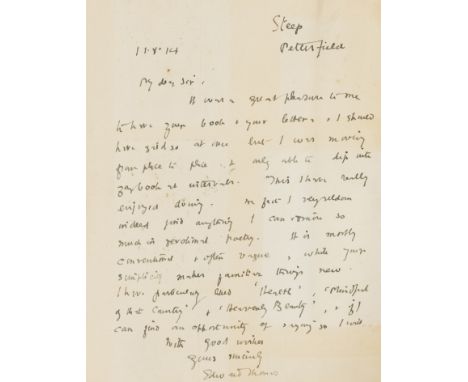 Steep
Petersfield
11.8.14
My dear Sir,
It was a great pleasure to me
to have your book & your letter & I should
have said so at once but I was moving
from place to place & only able to dip into
your book at intervals. This I have really
enjoyed doing. In fact I very seldom
indeed find anything I can admire so
much in devotional poetry. It is mostly
conventional & often vague, while your
simplicity makes familiar things new.
I have particularly liked 'Bereft', 'Mindful
of that Country', & 'Heavenly Beauty', & if I
can find an opportunity of saying so I will.
With good wishes
Yours sincerely
Edward Thomas